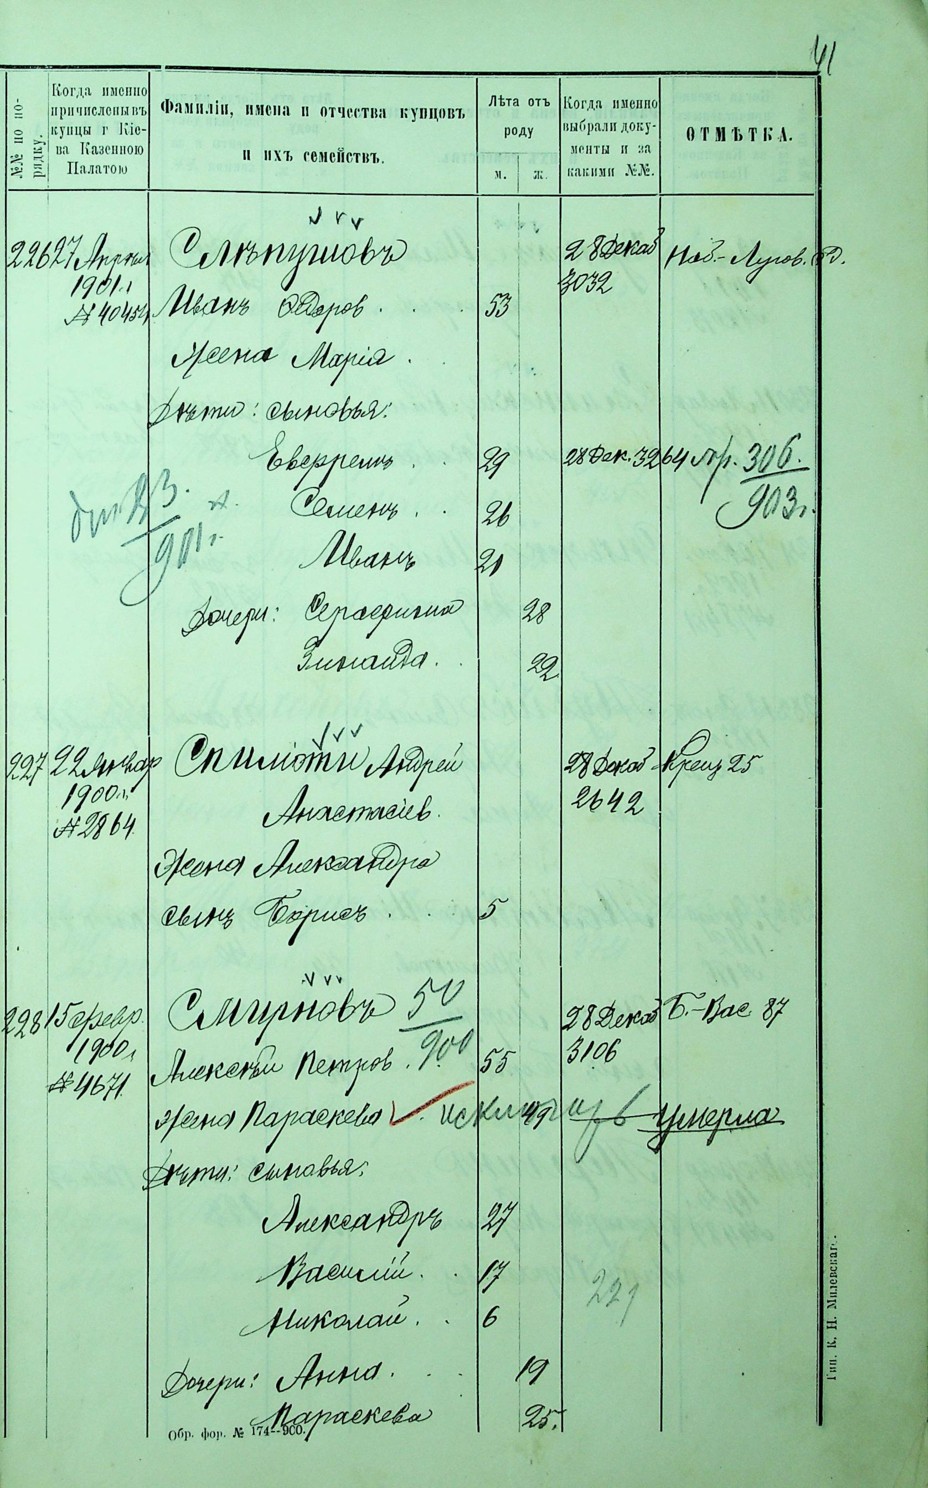 41
№№ по по-
рядку.
Когда именно
причислены въ
купцы г Кіе-
ва Казенною
Палатою
Фамиліи, имена и отчества купцовъ
и ихъ семействъ.
Лѣта отъ
роду
м.
ж.
Когда именно
выбрали доку-
менты и за
какими №№.
ОТМѢТКА.
226 27 Апрѣл Слѣпушовъ 28 Декаб Наб.-Лугов. с. д.
1901 г. 3032
№ 40454 Иванъ Ѳедоров . . . 53
Жена Марія .
Дѣти: сыновья:
Евгремъ . . 29 28 Дек. 3264 Пр. 306.
903 г.
Семенъ . . 26
23.
901 г.
Иванъ 21
Дочери: Серафима 28
Зинаида . . 22
227 22 Январ Спиліоти Андрей 28 Декаб Крещ 25
1900 г. 2642
№ 2864 Анастасіев.
Жена Александра
сынъ Борисъ . . 5
228 15 Февр. Смирновъ 50 28 Декаб Б.-Вас 87
900
1900 г. 3106
№ 4671 Алексѣй Петров . . 55
Жена Параскева исключ 49 умерла
Дѣти: сыновья:
Александръ 27
Василій . . 17
221
Николай . . 6
Дочери: Анна . . . 19
Параскева 25.
Обр. фор. № 174—900.
Тип. К. Н. Милевскаг.